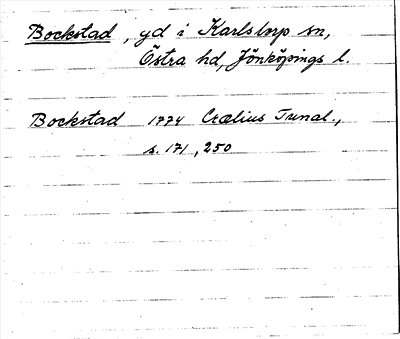 Bockstad, yd i Karlstorp sn,
Östra hd, Jönköpings l.
Bockstad 1774 Crælius Tunal.,
s. 171, 250